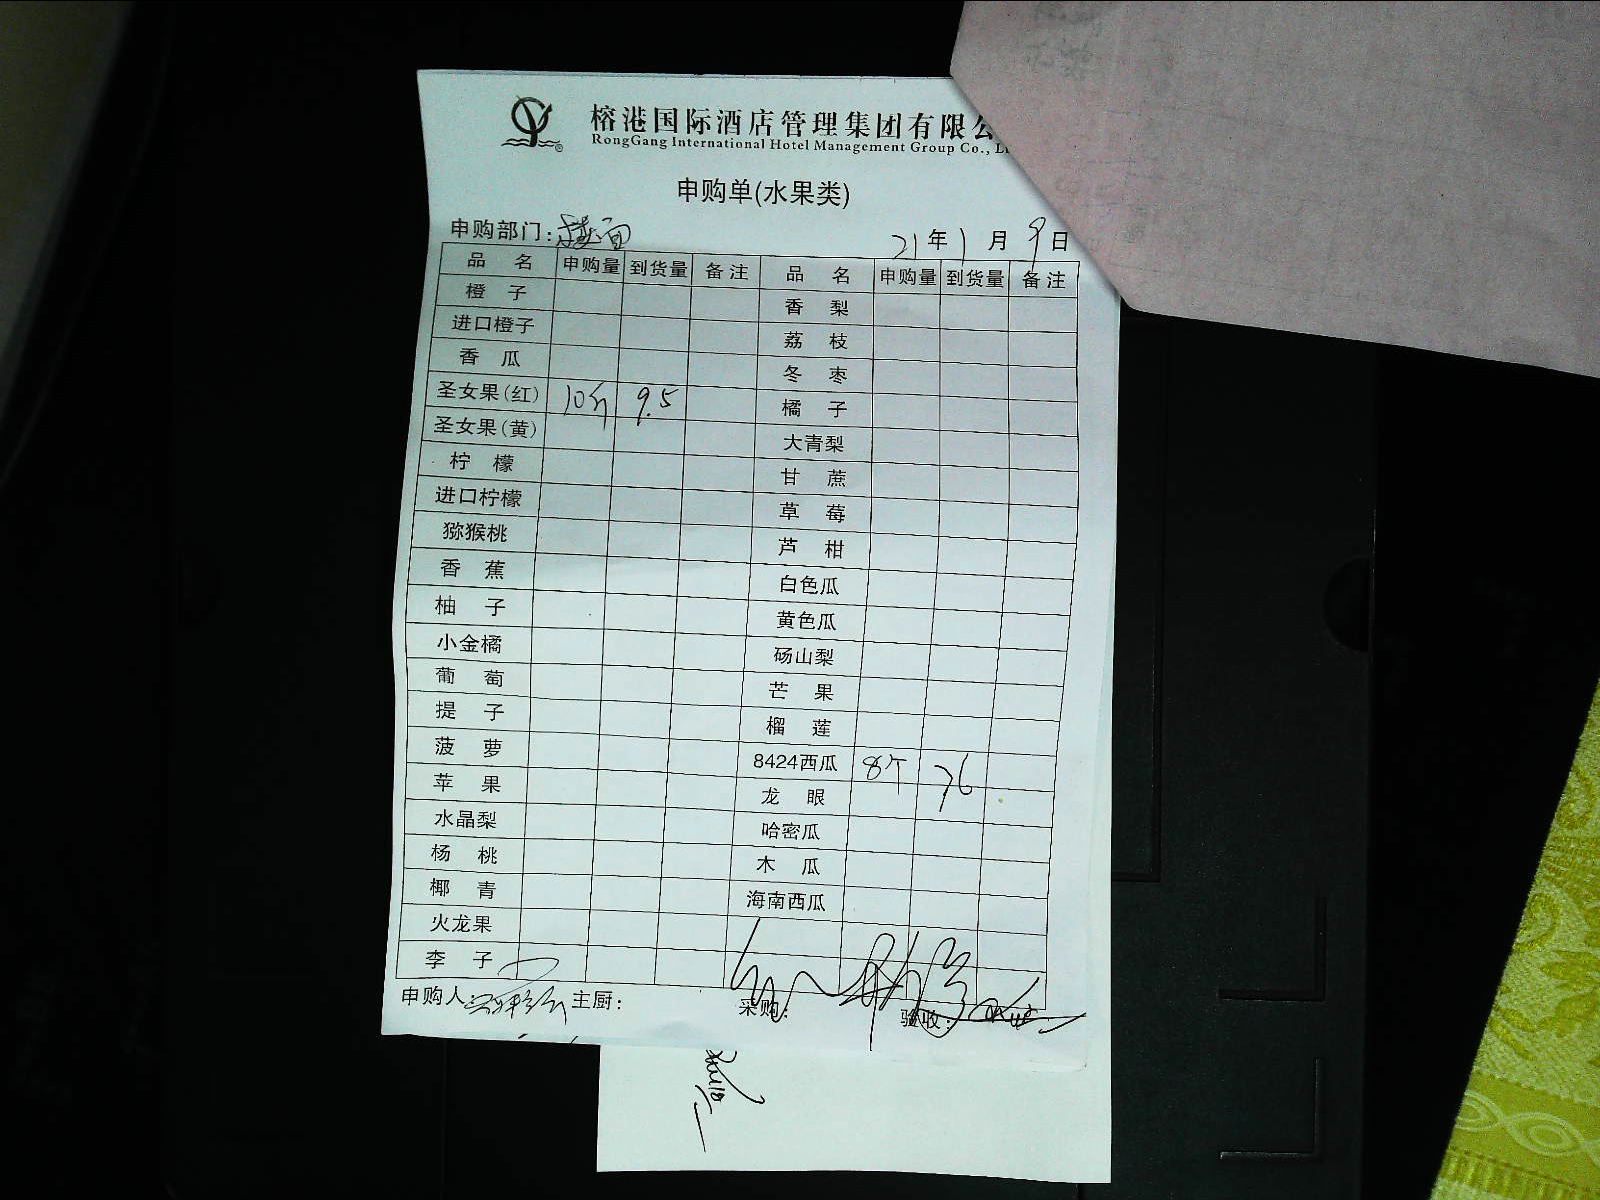 榕港国际酒店管理集团有限公
RongGang International Hotel Management Group Co., L
申购单(水果类)
申购部门:楼面 21年1月9日
品名 申购量 到货量 备注 品名 申购量 到货量 备注
橙子 香梨
进口橙子 荔枝
香瓜 冬枣
圣女果(红) 10斤 9.5 橘子
圣女果(黄) 大青梨
柠檬 甘蔗
进口柠檬 草莓
猕猴桃 芦柑
香蕉 白色瓜
柚子 黄色瓜
小金橘 砀山梨
葡萄 芒果
提子 榴莲
菠萝 8424西瓜 8个 76
苹果 龙眼
水晶梨 哈密瓜
杨桃 木瓜
椰青 海南西瓜
火龙果
李子
申购人: 主厨: 采购: 验收: